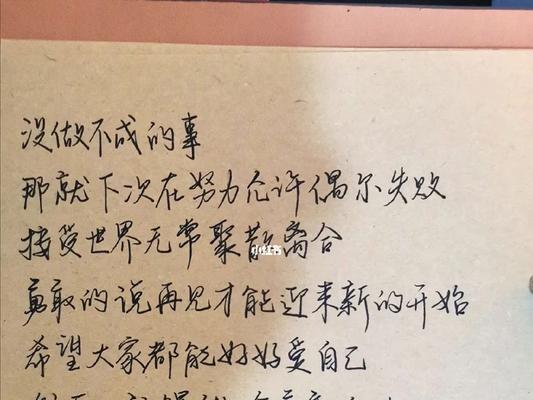 没做不成的事
那就下次在努力允许偶尔失败
接受世界无常聚散离合
小红书
勇敢的说再见才能迎来新的开始
希望大家都能好好爱自己